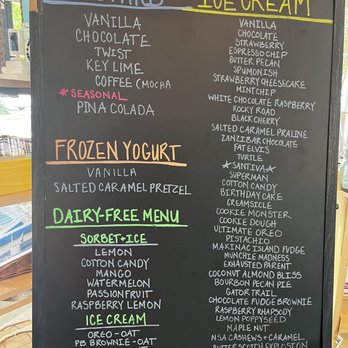 ICE CREAM
VANILLA
CHOCOLATE
TWIST
KEY LIME
COFFEE (MOCHA
*SEASONAL
PINA COLADA
FROZEN YOGURT
VANILLA
SALTED CARAMEL PRETZEL
DAIRY-FREE MENU
SORBET+ICE
LEMON
COTTON CANDY
MANGO
WATERMELON
PASSIONFRUIT
RASPBERRY LEMON
ICE CREAM
OREO-OAT
PB BROWNIE-OAT
VANILLA
CHOCOLATE
STRAWBERRY
ESPRESSO CHIP
BUTTER PECAN
SPUMONISH
STRAWBERRY CHEESECAKE
MINT CHIP
WHITE CHOCOLATE RASPBERRY
ROCKY ROAD
BLACK CHERRY
SALTED CARAMEL PRALINE
ZANZIBAR CHOCOLATE
FAT ELVIS
TURTLE
*SANTIVA*
SUPERMAN
COTTON CANDY
BIRTHDAY CAKE
CREAMSICLE
COOKIE MONSTER
COOKIE DOUGH
ULTIMATE OREO
PISTACHIO
MAKINAC ISLAND FUDGE
MUNCHIE MADNESS
EXHAUSTED PARENT
COCONUT ALMOND BLISS
BOURBON PECAN PIE
GATOR TRAIL
CHOCOLATE FUDGE BROWNIE
RASPBERRY RHAPSODY
LEMON POPPYSEED
MAPLE NUT
NSA CASHEWS+CARAMEL
BUTTERSCOTCH EXPLOSION